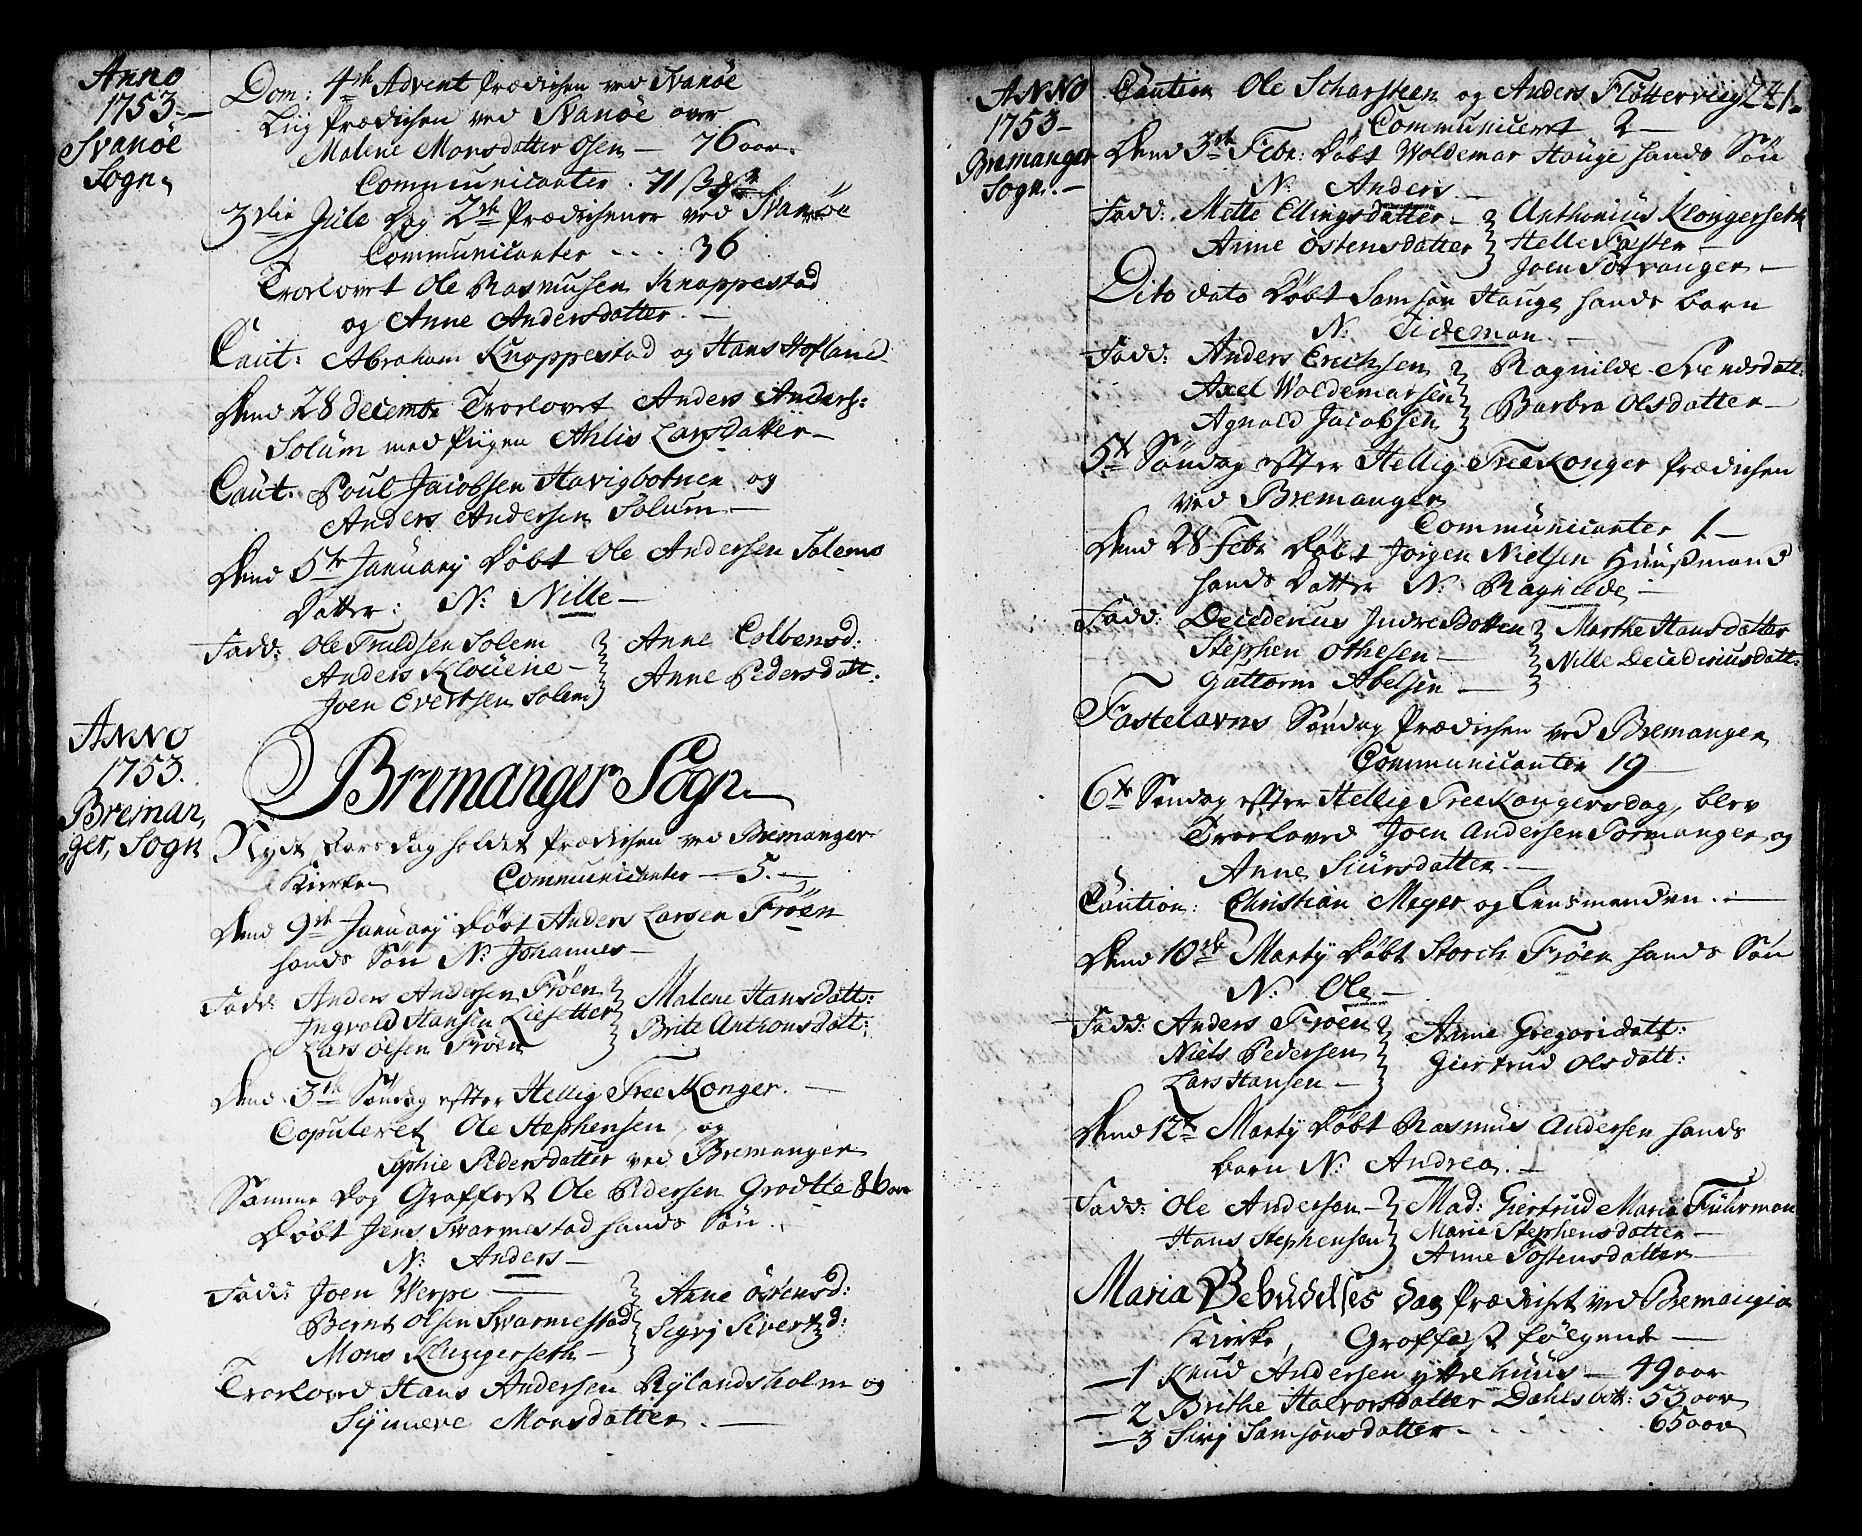 Anno
1753.
Svanöe
Sogn.
Dom: 4de Advent Prædichen ved Svanöe
Liig Prædichen ved Svanöe over
Malene Monsdatter Osen — 76 aar.
Communicanter . 71
3die Jule Dag Prædichener ved Svanöe
Communicanter - - . 36
Trorlovet Ole Rasmusen Knappestad
og Anne Andersdatter. —
Caut: Abraham Knappestad og Hans Hofland
Dend 28 decembr Trorlovet Anders Anders:
Solum med Piigen Ahlis Larsdatter —
Caut: Poul Jacobsen Havigbotnen og
Anders Andersen Solum —
Dend 5te January Döbt Ole Andersen Solems
Datter: N: Nille —
Fadd: Ole Truldsen Solem
Anders Klouene —
Joen Evertsen Solem
Anne Colbensd:
Anne Pedersdatt:
ANNO
1753.
Breman,
ger, Sogn
Bremanger Sogn.
Nyt Aars Dag holdet Prædichen ved Bremanger
Kirke Communicanter — 5. —
Dend 9de January Döbt Anders Larsen Fröen
hands Sön N: Johannes —
Fadd: Anders Andersen Fröen
Ingvold Hansen Liesetter
Lars Olsen Fröen
Malene Hansdatt:
Brite Anthonsdatt:
Dend 3de Søndag efter Hellig Tree Konger. —
Copuleret Ole Stephensen og
Sophie Pedersdatter ved Bremanger
Samme Dag Graffest Ole Pedersen Grodtte 86 aar
Döbt Jens Svarmestad hands Sön.
N: Anders —
Fadd: Joen Verpe —
Bernt Olsen Svarmestad
Mons Klungerseth —
Anne Östensd:
Segrj Sivertzd:
Trorlovd Hans Andersen Rylandsholm og
Synneve Monsdatter. —
ANNO
1753 —
Bremanger
Sogn. —
Caution Ole Scharsteen og Anders Flötterviig 241.
Communiceret 2 —
Dend 3de Febr: Döbt Woldemar Hauge hands Sön
N: Anders
Fadd: Mette Ellingsdatter —
Anne Östensdatter
Anthonius Klongerseth
Helle Faster —
Joen Torvanger —
Dito dato Döbt Samson Hauge hands barn
N: Tideman. —
Fadd: Anders Erichsen
Axel Woldemarsen
Agnald Jacobsen
Ragnilde Svendsdatt:
Barbra Olsdatter —
5te Söndag efter Hellig Tree Konger Prædichen
ved Bremanger
Communicanter 1 —
Dend 28 Febr Döbt Jörgen Nielsen Huusmand
hands Datter N: Ragnilde —
Fadd: Decederius Indrebotten
Stephen Othesen —
Guttorm Abelsen —
Marthe Hansdatter
Nille Decideriusdatt:
Fastelavns Søndag Prædichen ved Bremanger
Communicanter 19 —
6te Søndag efter Hellig Tree Kongersdag, blev
Trorloved Joen Andersen Tormanger og
Anne Siursdatter. —
Caution: Christian Meyer og Lensmanden. —
Dend 10de Marty Döbt Storch Fröen hands Sön
N: Ole —
Fadd: Anders Fröen
Niels Pedersen
Lars Hansen —
Anne Gregoridatt:
Giertrud Olsdatt:
Dend 12te Marty Döbt Rasmus Andersen hands
barn N: Andrea. —
Fadd: Ole Andersen —
Hans Stephensen
Mad: Giertrud Maria Fuhrman
Marie Stephensdatter —
Anne Tostensdatter
Maria Bebudelses Dag Prædichet ved Bremanger
Kirke, Graffest fölgende —
— 1 Knud Andersen Yttrehuus — 49 aar
— 2 Brithe Halvorsdatter Dahlsbtt: 53 aar
— 3 Sirj Samsonsdatter - . . . . 65 aar